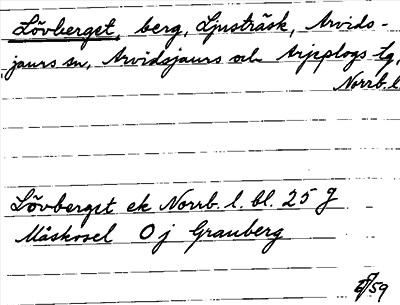 Lövberget, berg, Ljusträsk, Arvids-
jaurs sn, Arvidsjaurs och Arjeplogs tg,
Norrb. l.
Lövberget ek Norrb. l. bl. 25 g
Måskosel O j Granberg